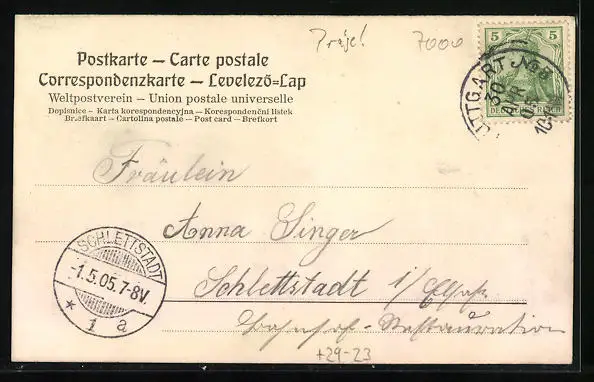 7000
Postkarte – Carte postale
Correspondenzkarte – Levelező-Lap
Weltpostverein – Union postale universelle
Dopisnice – Karta korespondencyjna – Korespondenční lístek
Brefkaart – Cartolina postale – Post card – Brefkort
5 5
DEUTSCHES REICH
STUTTGART No 8
30 APR
Fräulein
Anna Singer
Schlettstadt i/Elsaß.
Bahnhof-Restauration
SCHLETTSTADT
-1.5.05.7-8V.
* 1 a
+29-23